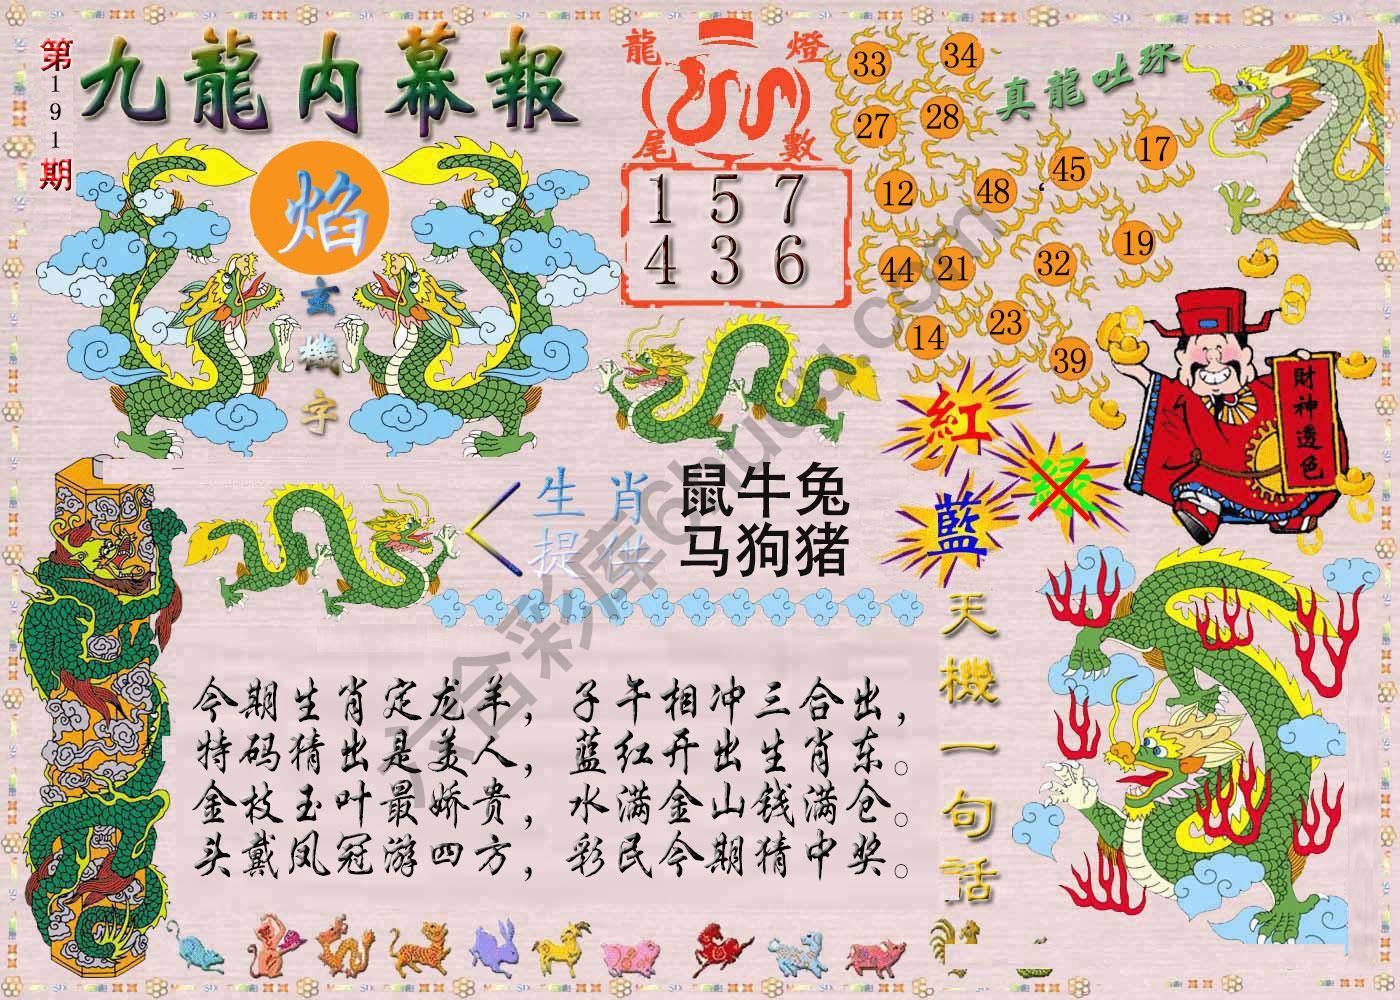 第191期
九龍内幕報
焰
玄機字
龍燈
尾數
1 5 7
4 3 6
真龍吐珠
33 34
27 28
12 48 45 17
44 21 32 19
14 23 39
財神透色
紅
綠
藍
生肖 鼠牛兔
提供 马狗猪
天機一句話
今期生肖定龙羊，子午相冲三合出，
特码猜出是美人，蓝红开出生肖东。
金枝玉叶最娇贵，水满金山钱满仓。
头戴凤冠游四方，彩民今期猜中奖。
六合彩库6huu.com